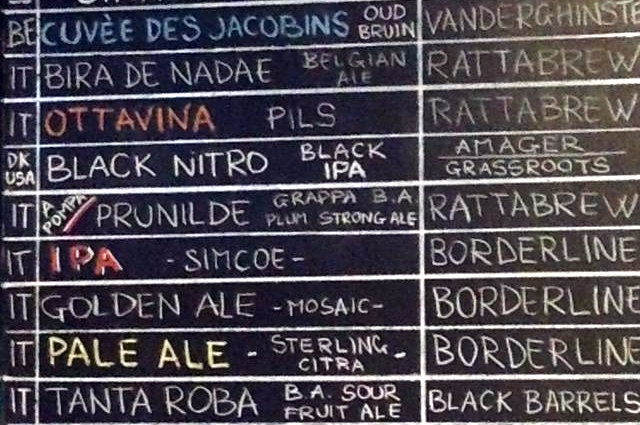 BE CUVÈE DES JACOBINS OUD BRUIN VANDERGHINST
IT BIRA DE NADAE BELGIAN ALE RATTABREW
IT OTTAVINA PILS RATTABREW
DK USA BLACK NITRO BLACK IPA AMAGER GRASSROOTS
IT A POMPA PRUNILDE GRAPPA B.A. PLUM STRONG ALE RATTABREW
IT IPA - SIMCOE - BORDERLINE
IT GOLDEN ALE - MOSAIC - BORDERLINE
IT PALE ALE - STERLING - CITRA BORDERLINE
IT TANTA ROBA B.A. SOUR FRUIT ALE BLACK BARRELS